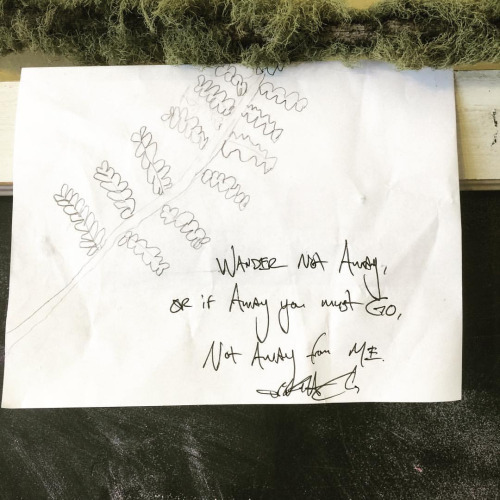 WANDER NOT AWAY,
OR if AWAY you must GO,
NOT AWAY from ME.